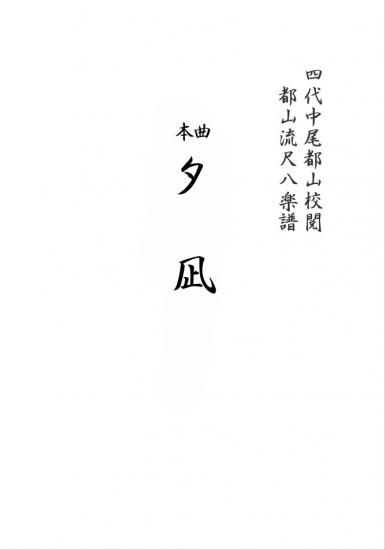 四代中尾都山校閲
都山流尺八楽譜
本曲
夕凪